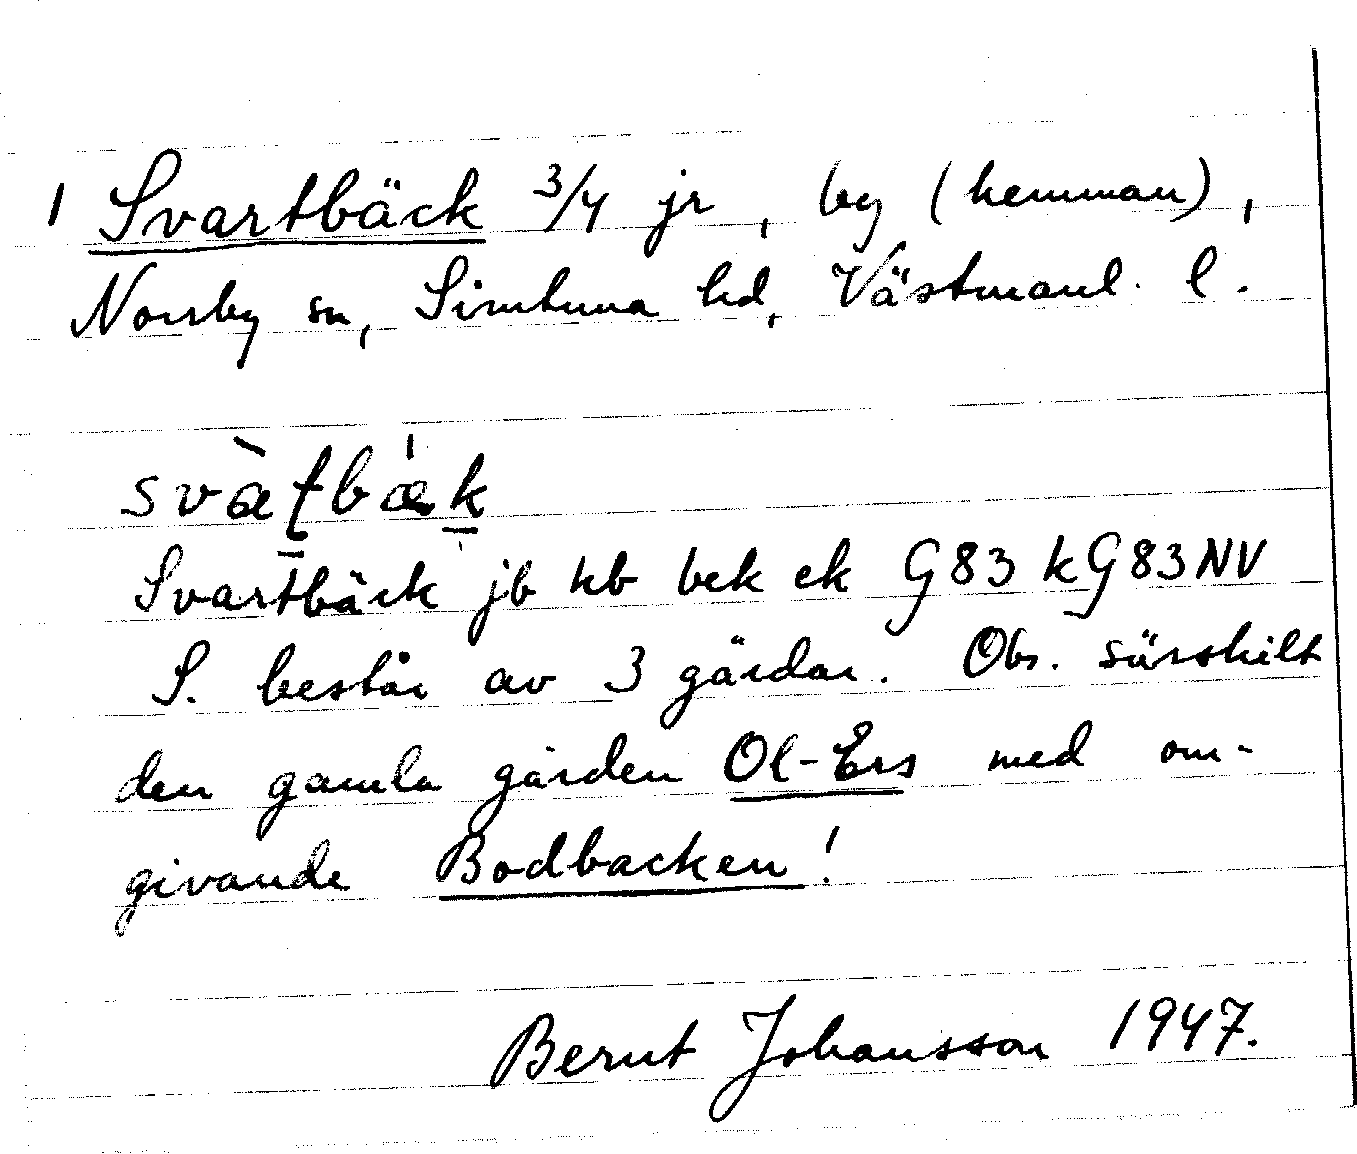 1 Svartbäck 3/4 jr, by (hemman),
Norrby sn, Simtuna hd, Västmanl. l.
svàʈbæ̀k
Svartbäck jb hb bek ek G83 kG83NV
S. består av 3 gårdar. Obs. särskilt
den gamla gården Ol-Ers med om-
givande Bodbacken!
Bernt Johansson 1947.